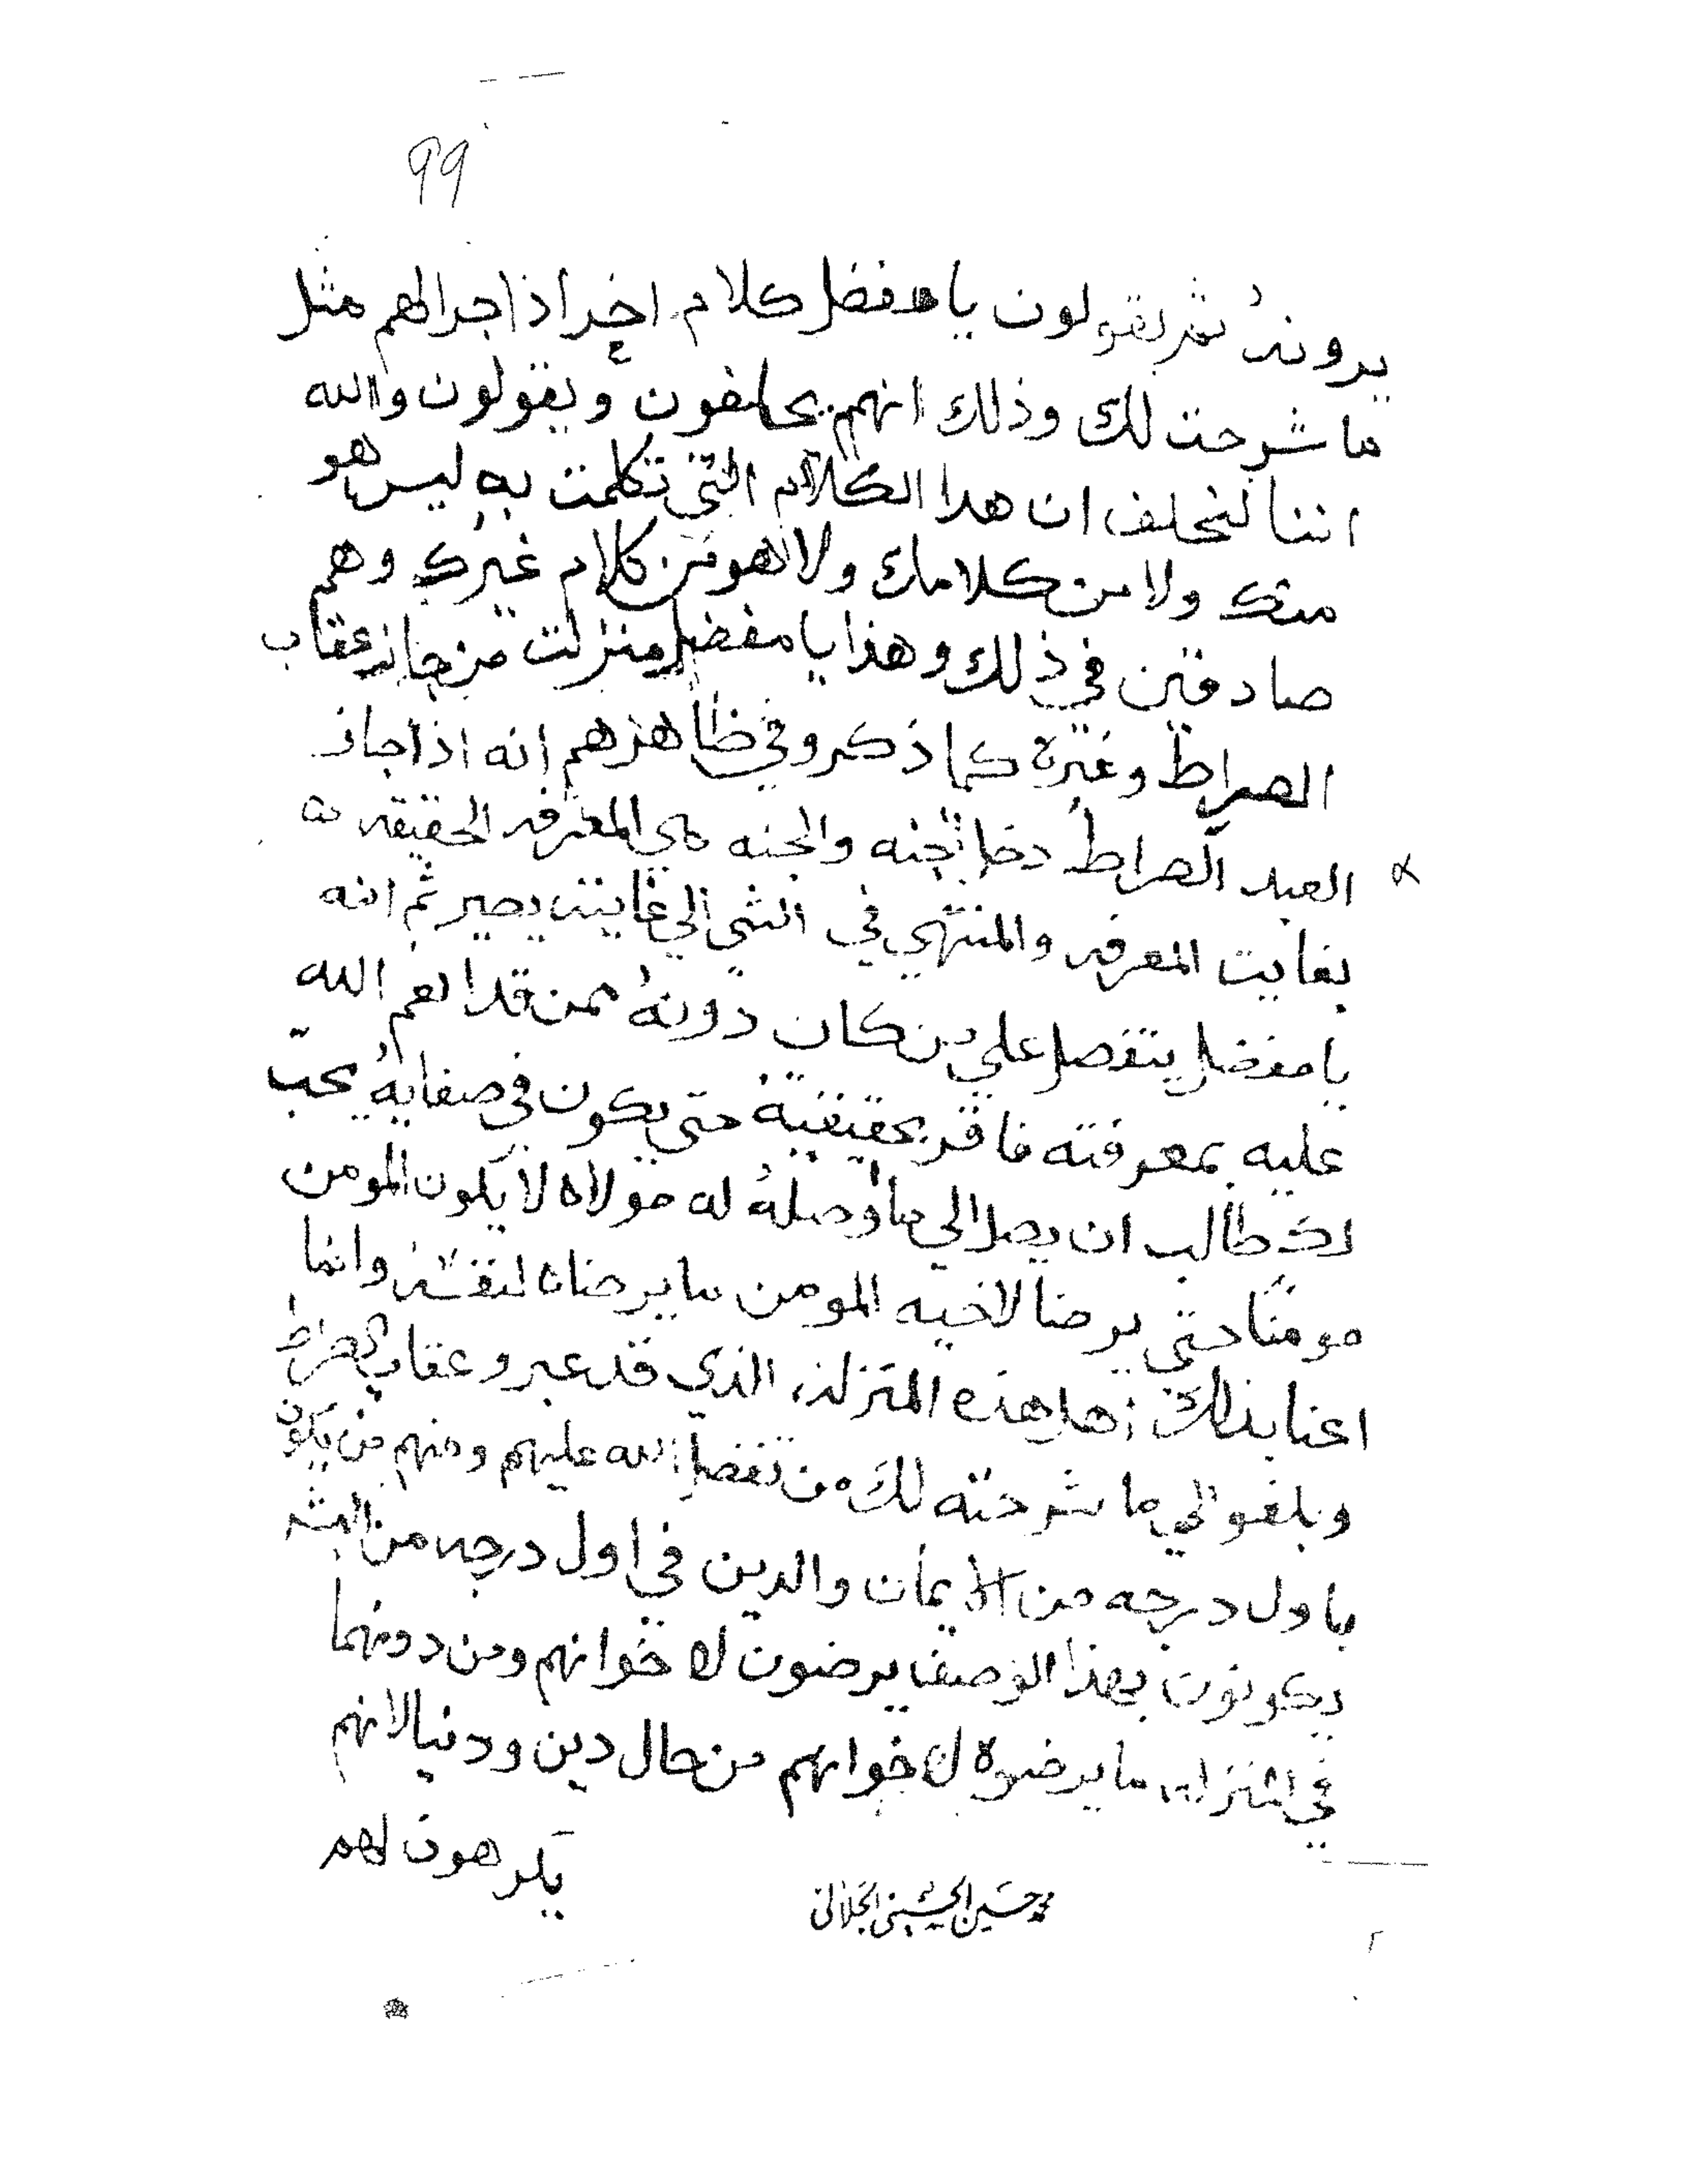 99
يرونه ثم يقولون يا مفضل كلام اخر اذا جرا لهم مثل
ما شرحت لك وذلك انهم يحلفون ويقولون والله
اننا لنحلف ان هدا الكلام التي تكلمت به ليس هو
منك ولا من كلامك ولا هو من كلام غيرك وهم
صادقين في ذلك وهذا يا مفضل منزلت من جاز عقاب
الصراط وغيره كما ذكروفي ظاهرهم انه اذا جاز
العبد الصراط دخل الجنه والجنه هي المعرفه الحقيقه
بغايت المعرفه والمنتهي في الشي الي غايت يصير ثم انه
يا مفضل يتفصل علي من كان دونه ممن قد انعم الله
عليه بمعرفته فاقر بحقيقية حتي يكون في صفايه يحب
لك طالب ان يصل الي ما اوصله له مولاه لا يكون المومن
مومنا حتي يرضا لاخيه المومن ما يرضاه لنفسه وانما
اعنا بذالك اهل هذه المنزله الذي قد عبرو عقاب الصراط
وبلغو الي ما شرحته لك من تفضل الله عليهم ومنهم من يكون
باول درجه من الايمان والدين في اول درجه من البشر
يكونون بهذا الوصف يرضون لاخوانهم ومن دونهما
في المنزله ما يرضوه لاخوانهم من حال دين ودنيا لانهم
يكرهون لهم
محمد حسين الحسيني الجلالي